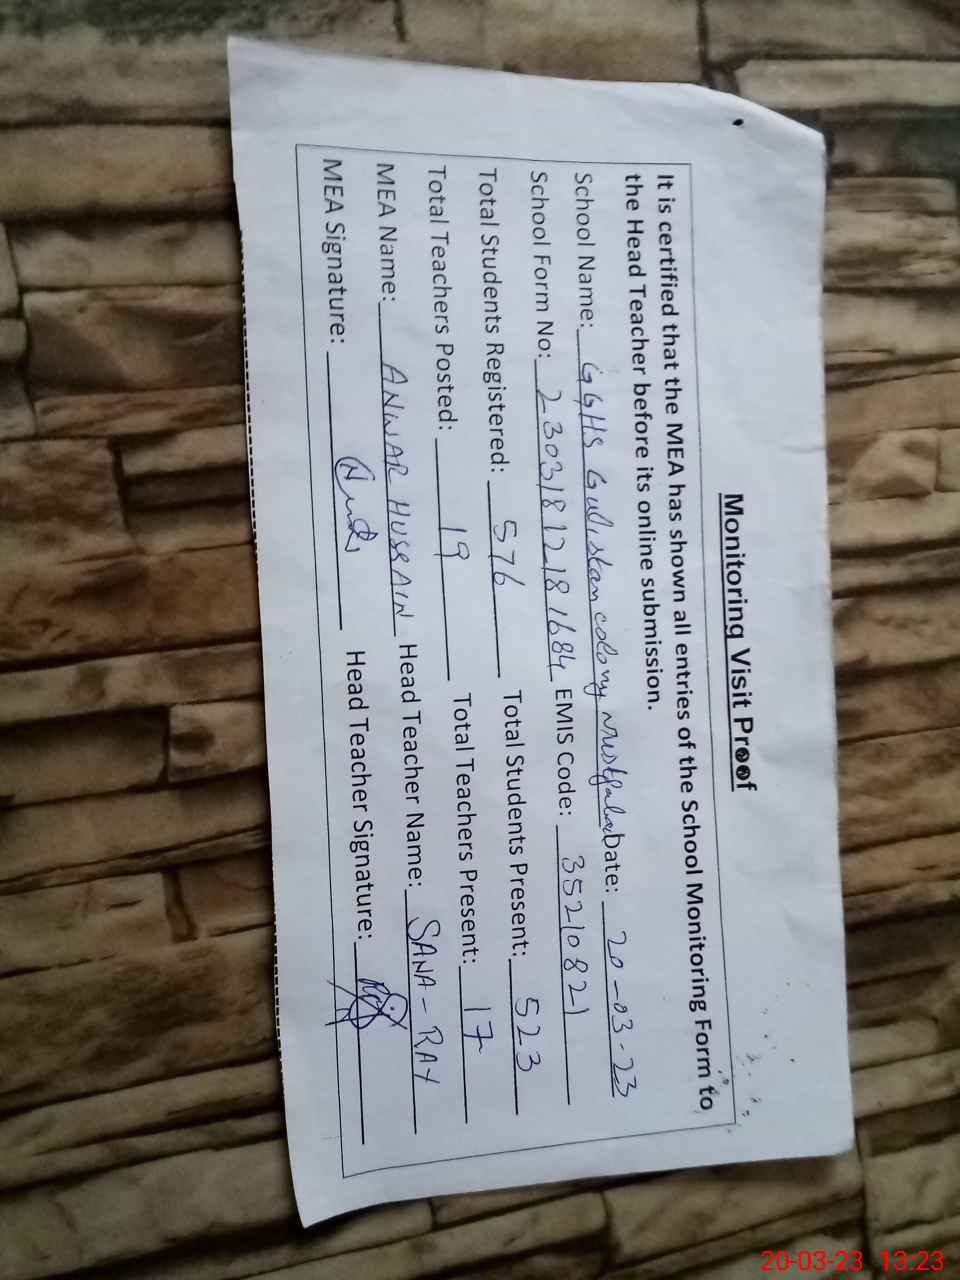 Monitoring Visit Proof
It is certified that the MEA has shown all entries of the School Monitoring Form to
the Head Teacher before its online submission.
School Name: GGHS Gulistan colony Date: 20-03-23
School Form No: 23031812181684 EMIS Code: 35210821
Total Students Registered: 576 Total Students Present: 523
Total Teachers Posted: 19 Total Teachers Present: 17
MEA Name: ANWAR HUSSAIN Head Teacher Name: SANA-RAY
MEA Signature: Head Teacher Signature:
20-03-23 13:23